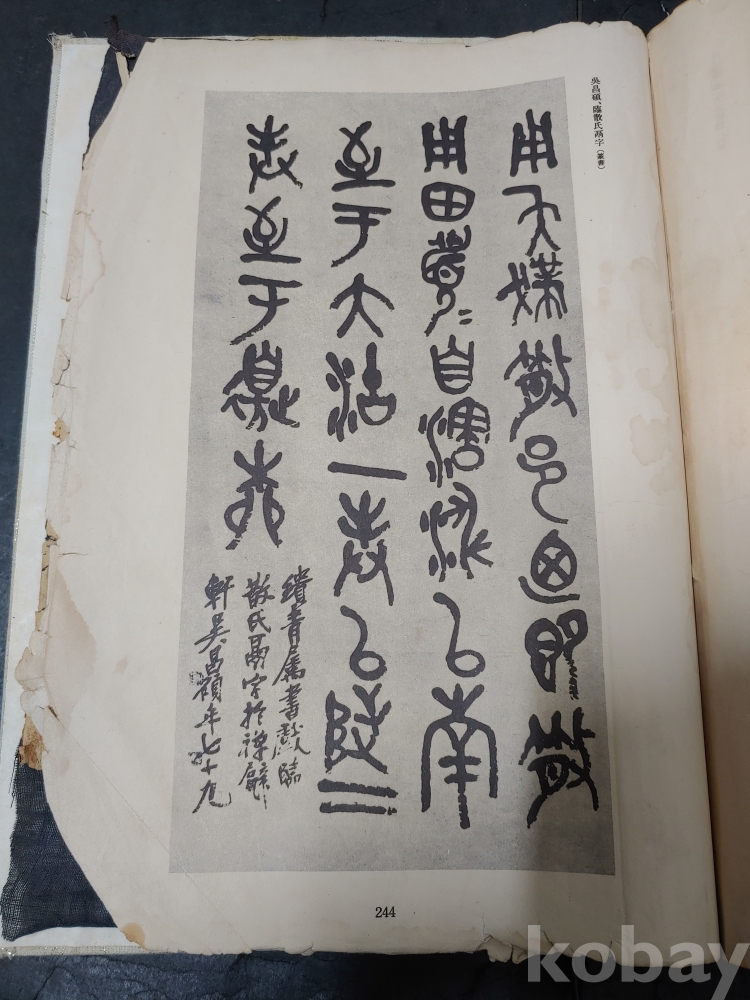 吳昌碩、臨散氏鬲字(篆書)
用夨散邑迺即散
用田自瀗涉以南
至于大沽一奉以陟二
奉至于邊柳
青屬書臨
散氏鬲字於禪甓
軒吳昌碩年七十九
244
kobay